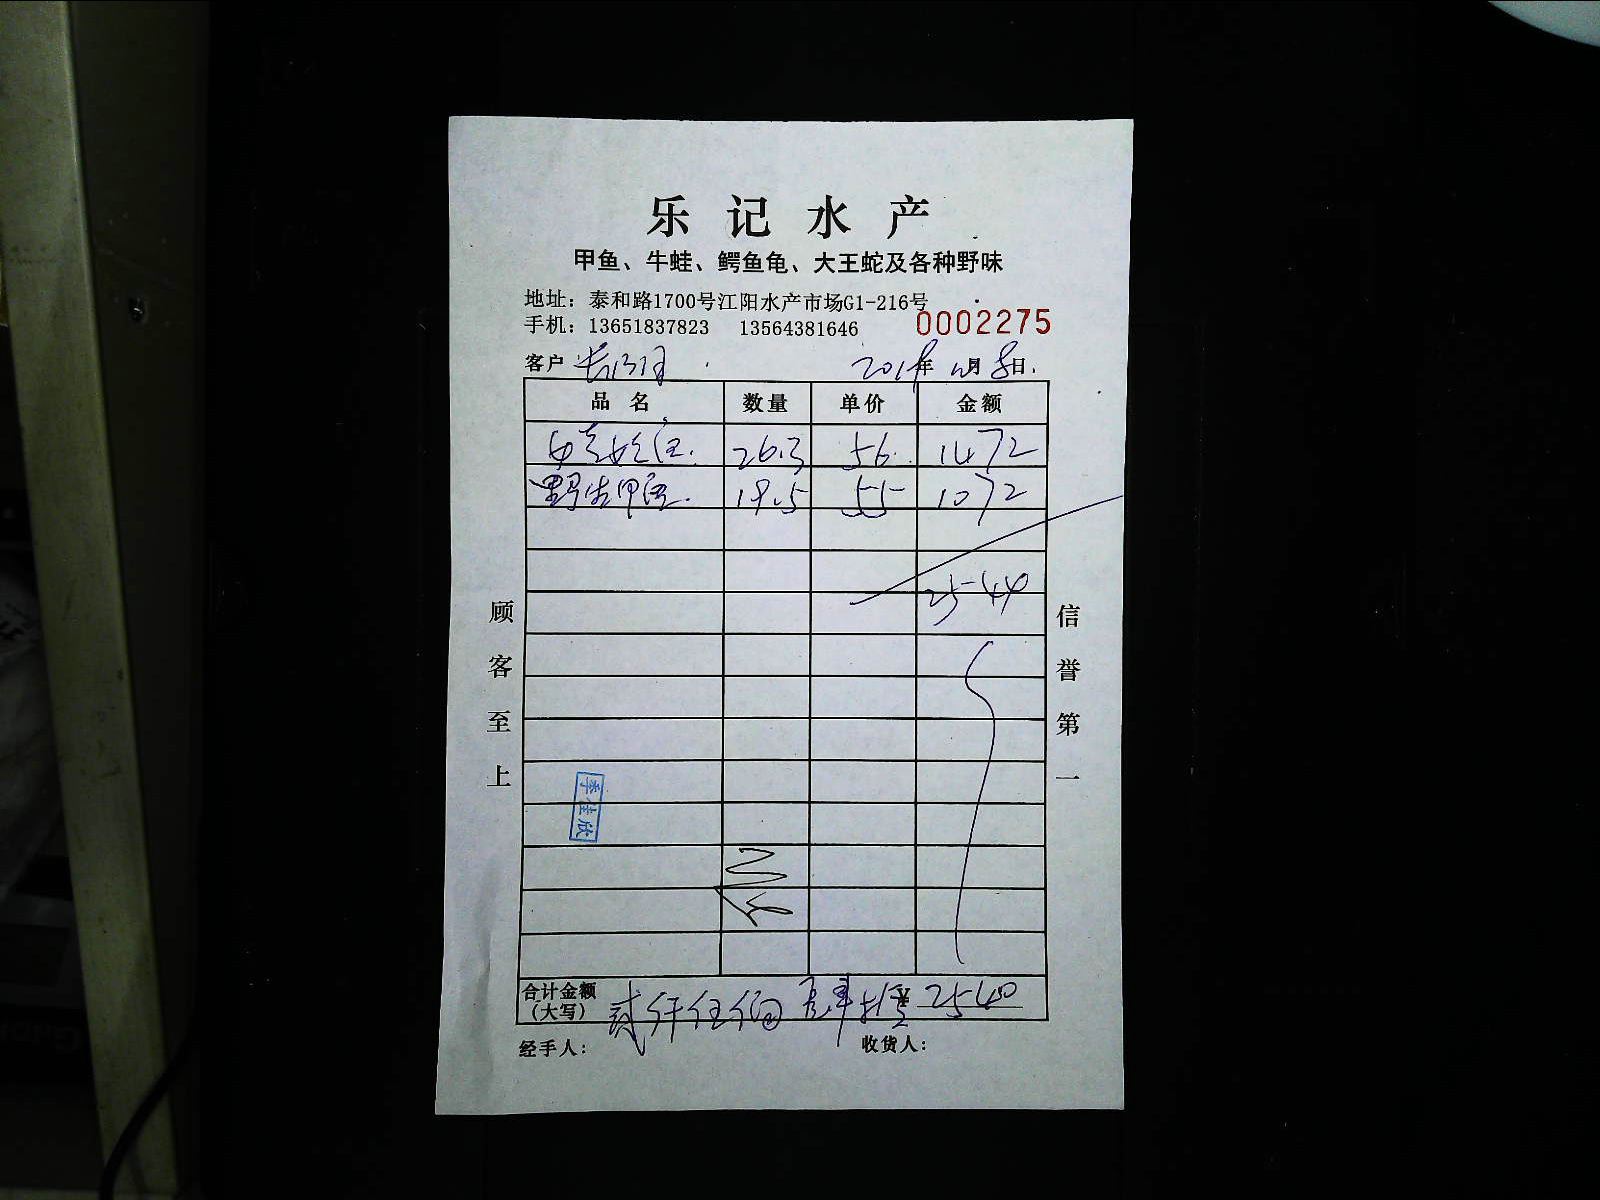 乐记水产
甲鱼、牛蛙、鳄鱼龟、大王蛇及各种野味
地址：泰和路1700号江阳水产市场G1-216号
手机：13651837823 13564381646
0002275
客户 年 月 8日
品名 数量 单价 金额
26.3 56 1472
野生甲鱼 19.5 55 1072
2544
顾客至上
信誉第一
季佳欣
合计金额（大写） 贰仟伍佰肆拾 ¥ 2540
经手人： 收货人：